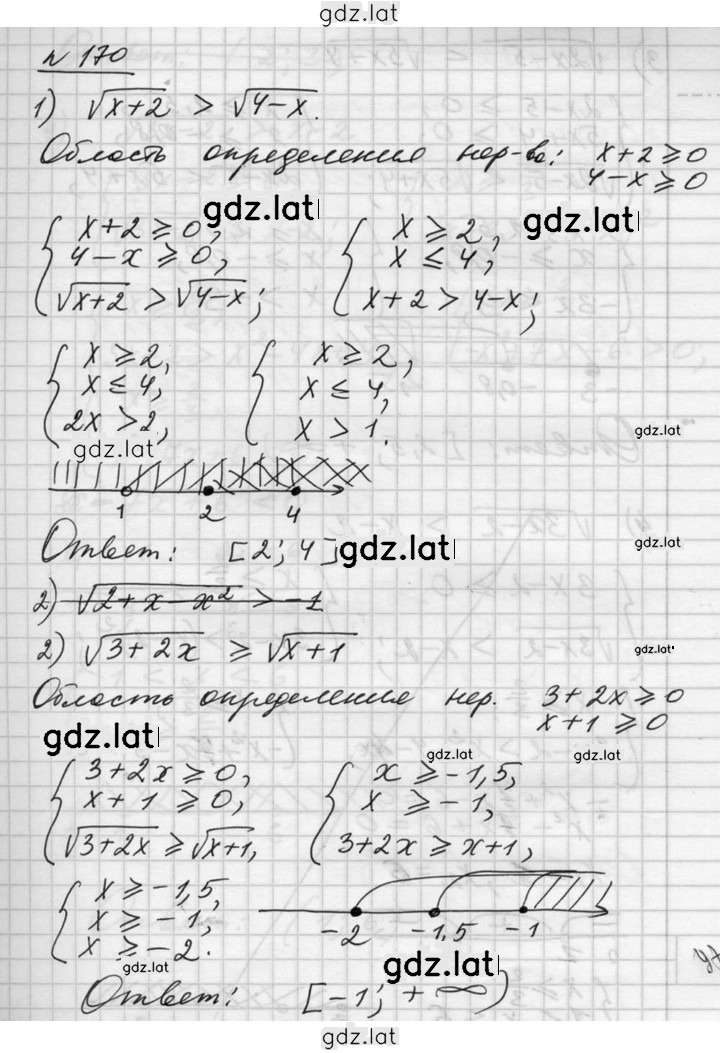 gdz.lat
n 170
1) √x+2 > √4-x.
Область определения нер-ва: x+2 ≥ 0
4-x ≥ 0
gdz.lat gdz.lat
{ x+2 ≥ 0, { x ≥ 2,
4-x ≥ 0, x ≤ 4,
√x+2 > √4-x; x+2 > 4-x;
{ x ≥ 2, { x ≥ 2,
x ≤ 4, x ≤ 4,
2x > 2, x > 1.
gdz.lat gdz.lat
1 2 4
Ответ: [2; 4] gdz.lat gdz.lat
2) √2+x-x² > -1
2) √3+2x ≥ √x+1 gdz.lat
Область определения нер. 3+2x ≥ 0
x+1 ≥ 0
gdz.lat gdz.lat gdz.lat
{ 3+2x ≥ 0, { x ≥ -1,5,
x+1 ≥ 0, x ≥ -1,
√3+2x ≥ √x+1, 3+2x ≥ x+1,
{ x ≥ -1,5,
x ≥ -1,
x ≥ -2.
-2 -1,5 -1
gdz.lat gdz.lat
Ответ: [-1; +∞)
gdz.lat